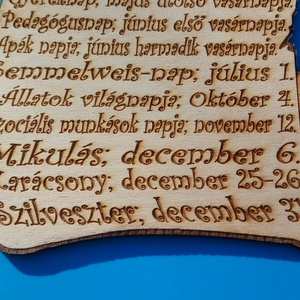 Gyereknap, május utolsó vasárnapja.
Pedagógusnap; június első vasárnapja.
Apák napja; június harmadik vasárnapja.
Semmelweis-nap; július 1.
Állatok világnapja; Október 4.
zociális munkások napja; november 12.
Mikulás; december 6.
Karácsony; december 25-26
Szilveszter, december 31